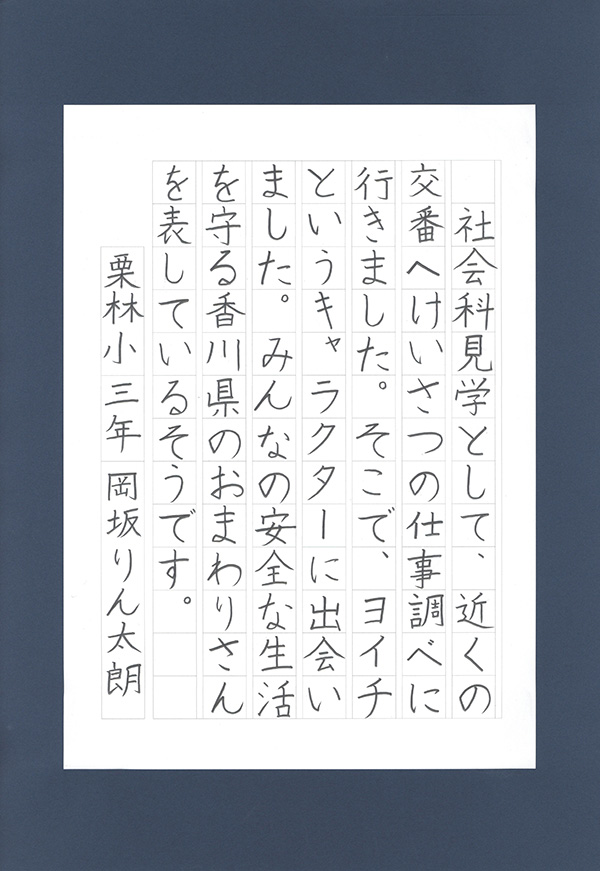 社会科見学として、近くの
交番へけいさつの仕事調べに
行きました。そこで、ヨイチ
というキャラクターに出会い
ました。みんなの安全な生活
を守る香川県のおまわりさん
を表しているそうです。
栗林小 三年 岡坂りん太朗